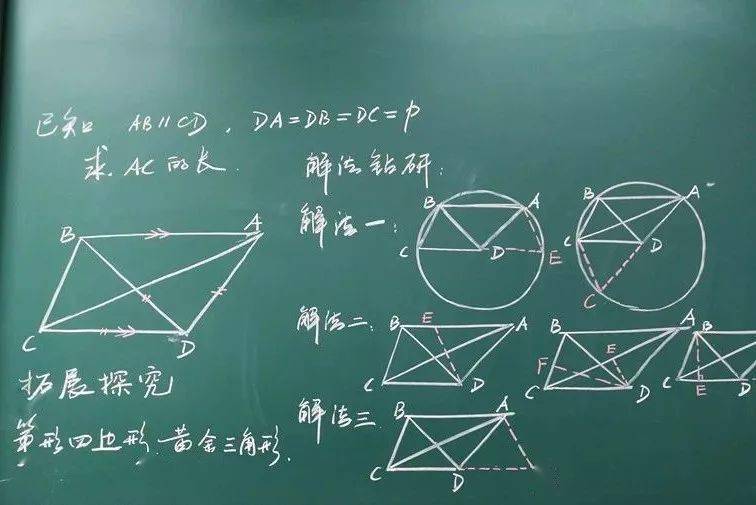 已知 AB∥CD, DA=DB=DC=p
求 AC的长.
解法钻研:
解法一:
B A C D E
B A C D C
B A C D
解法二:
B E A C D
B A F E C D
B C E D
解法三
B A C D
拓展探究
筝形四边形.黄金三角形.